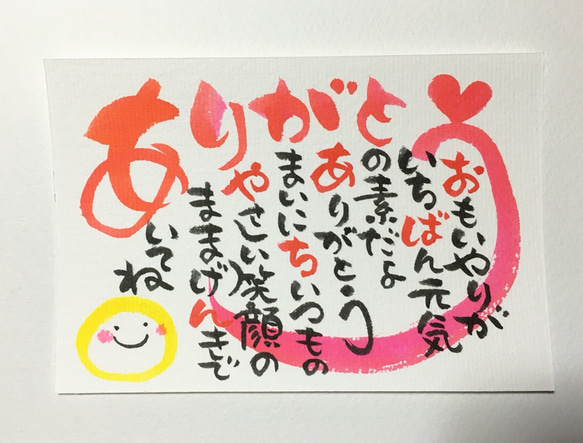 ありがとう
おもいやりが
いちばん元気
の素だよ
ありがとう
まいにちいつもの
やさしい笑顔の
ままげんきで
いてね